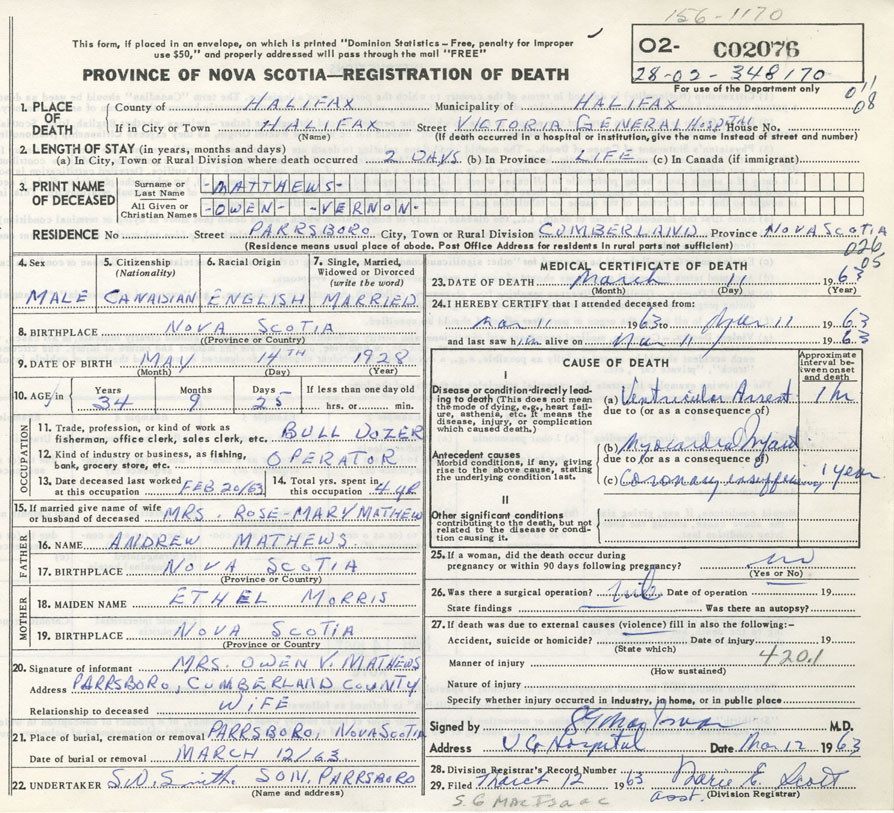 156-1170
This form, if placed in an envelope, on which is printed "Dominion Statistics – Free, penalty for improper
use $50," and properly addressed will pass through the mail "FREE"
O2- C02076
28-02-348170
PROVINCE OF NOVA SCOTIA—REGISTRATION OF DEATH
For use of the Department only
011
08
1. PLACE OF DEATH
County of HALIFAX Municipality of HALIFAX
If in City or Town HALIFAX Street VICTORIA GENERAL HOSPITAL House No.
(Name) (If death occurred in a hospital or institution, give the name instead of street and number)
2. LENGTH OF STAY (in years, months and days)
(a) In City, Town or Rural Division where death occurred 2 DAYS (b) In Province LIFE (c) In Canada (if immigrant)
3. PRINT NAME OF DECEASED
Surname or Last Name -MATTHEWS-
All Given or Christian Names -OWEN- -VERNON-
RESIDENCE No Street PARRSBORO City, Town or Rural Division CUMBERLAND Province NOVA SCOTIA
(Residence means usual place of abode. Post Office Address for residents in rural parts not sufficient)
026
05
4. Sex
MALE
5. Citizenship
(Nationality)
CANAISIAN
6. Racial Origin
ENGLISH
7. Single, Married,
Widowed or Divorced
(write the word)
MARRIED
8. BIRTHPLACE NOVA SCOTIA
(Province or Country)
9. DATE OF BIRTH MAY 14TH 1928
(Month) (Day) (Year)
10. AGE in Years Months Days If less than one day old
34 9 25 hrs. or min.
OCCUPATION
11. Trade, profession, or kind of work as
fisherman, office clerk, sales clerk, etc. BULL DOZER
12. Kind of industry or business, as fishing,
bank, grocery store, etc. OPERATOR
13. Date deceased last worked
at this occupation FEB 20/63
14. Total yrs. spent in
this occupation 4 YR
15. If married give name of wife
or husband of deceased MRS. ROSE-MARY MATHEW
FATHER
16. NAME ANDREW MATHEWS.
17. BIRTHPLACE NOVA SCOTIA
(Province or Country)
MOTHER
18. MAIDEN NAME ETHEL MORRIS
19. BIRTHPLACE NOVA SCOTIA
(Province or Country)
20. Signature of informant MRS. OWEN V. MATHEWS
Address PARRSBORO, CUMBERLAND COUNTY
Relationship to deceased WIFE
21. Place of burial, cremation or removal PARRSBORO, NOVA SCOTIA
Date of burial or removal MARCH 12/63.
22. UNDERTAKER S.D. Smith. SON. PARRSBORO
(Name and address)
MEDICAL CERTIFICATE OF DEATH
23. DATE OF DEATH March 11 1963
(Month) (Day) (Year)
24. I HEREBY CERTIFY that I attended deceased from:
Mar 11 1963 to Mar 11 1963
and last saw him alive on Mar 11 1963
CAUSE OF DEATH
Approximate interval between onset and death
I
Disease or condition directly leading to death (This does not mean the mode of dying, e.g., heart failure, asthenia, etc. It means the disease, injury, or complication which caused death.)
(a) Ventricular Arrest 1 hr
due to (or as a consequence of)
Antecedent causes
Morbid conditions, if any, giving rise to the above cause, stating the underlying condition last.
(b) Myocardial
due to (or as a consequence of)
(c) Coronary insufficiency 1 year
II
Other significant conditions
contributing to the death, but not related to the disease or condition causing it.
25. If a woman, did the death occur during
pregnancy or within 90 days following pregnancy? no
(Yes or No)
26. Was there a surgical operation? nil Date of operation 19
State findings Was there an autopsy?
27. If death was due to external causes (violence) fill in also the following:-
Accident, suicide or homicide? Date of injury 19
(State which)
420.1
Manner of injury
(How sustained)
Nature of injury
Specify whether injury occurred in Industry, in home, or in public place
Signed by M.D.
Address V G Hospital Date Mar 12 1963
28. Division Registrar's Record Number
29. Filed March 12 1963 Marie E. Scott
asst. (Division Registrar)
S. G MacIsaac